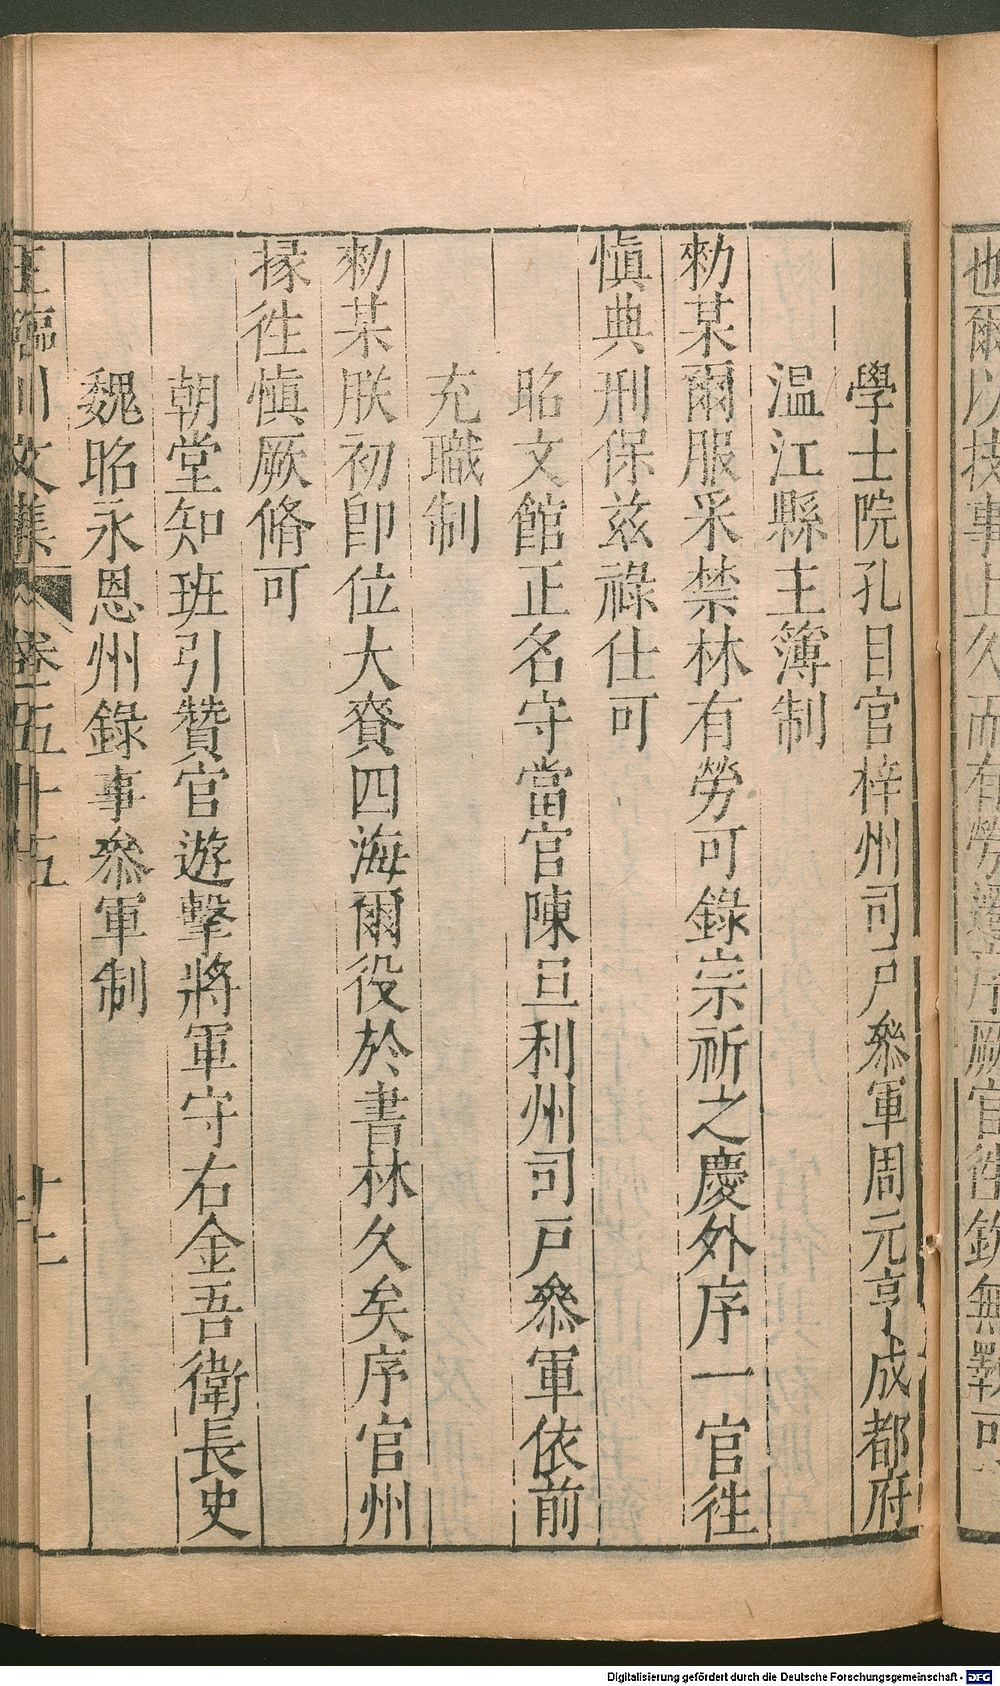 也爾以扶事上久而有勞遷序厥官徃欽無斁可
學士院孔目官梓州司戸叅軍周元亨成都府
温江縣主簿制
勑某爾服采禁林有勞可錄宗祈之慶外序一官徃
慎典刑保兹祿仕可
昭文館正名守當官陳旦利州司戸叅軍依前
充職制
勑某朕初即位大賚四海爾役於書林久矣序官州
掾徃慎厥脩可
朝堂知班引贊官遊擊將軍守右金吾衛長史
魏昭永恩州錄事叅軍制
王臨川文集 卷五十五
Digitalisierung gefördert durch die Deutsche Forschungsgemeinschaft - DFG